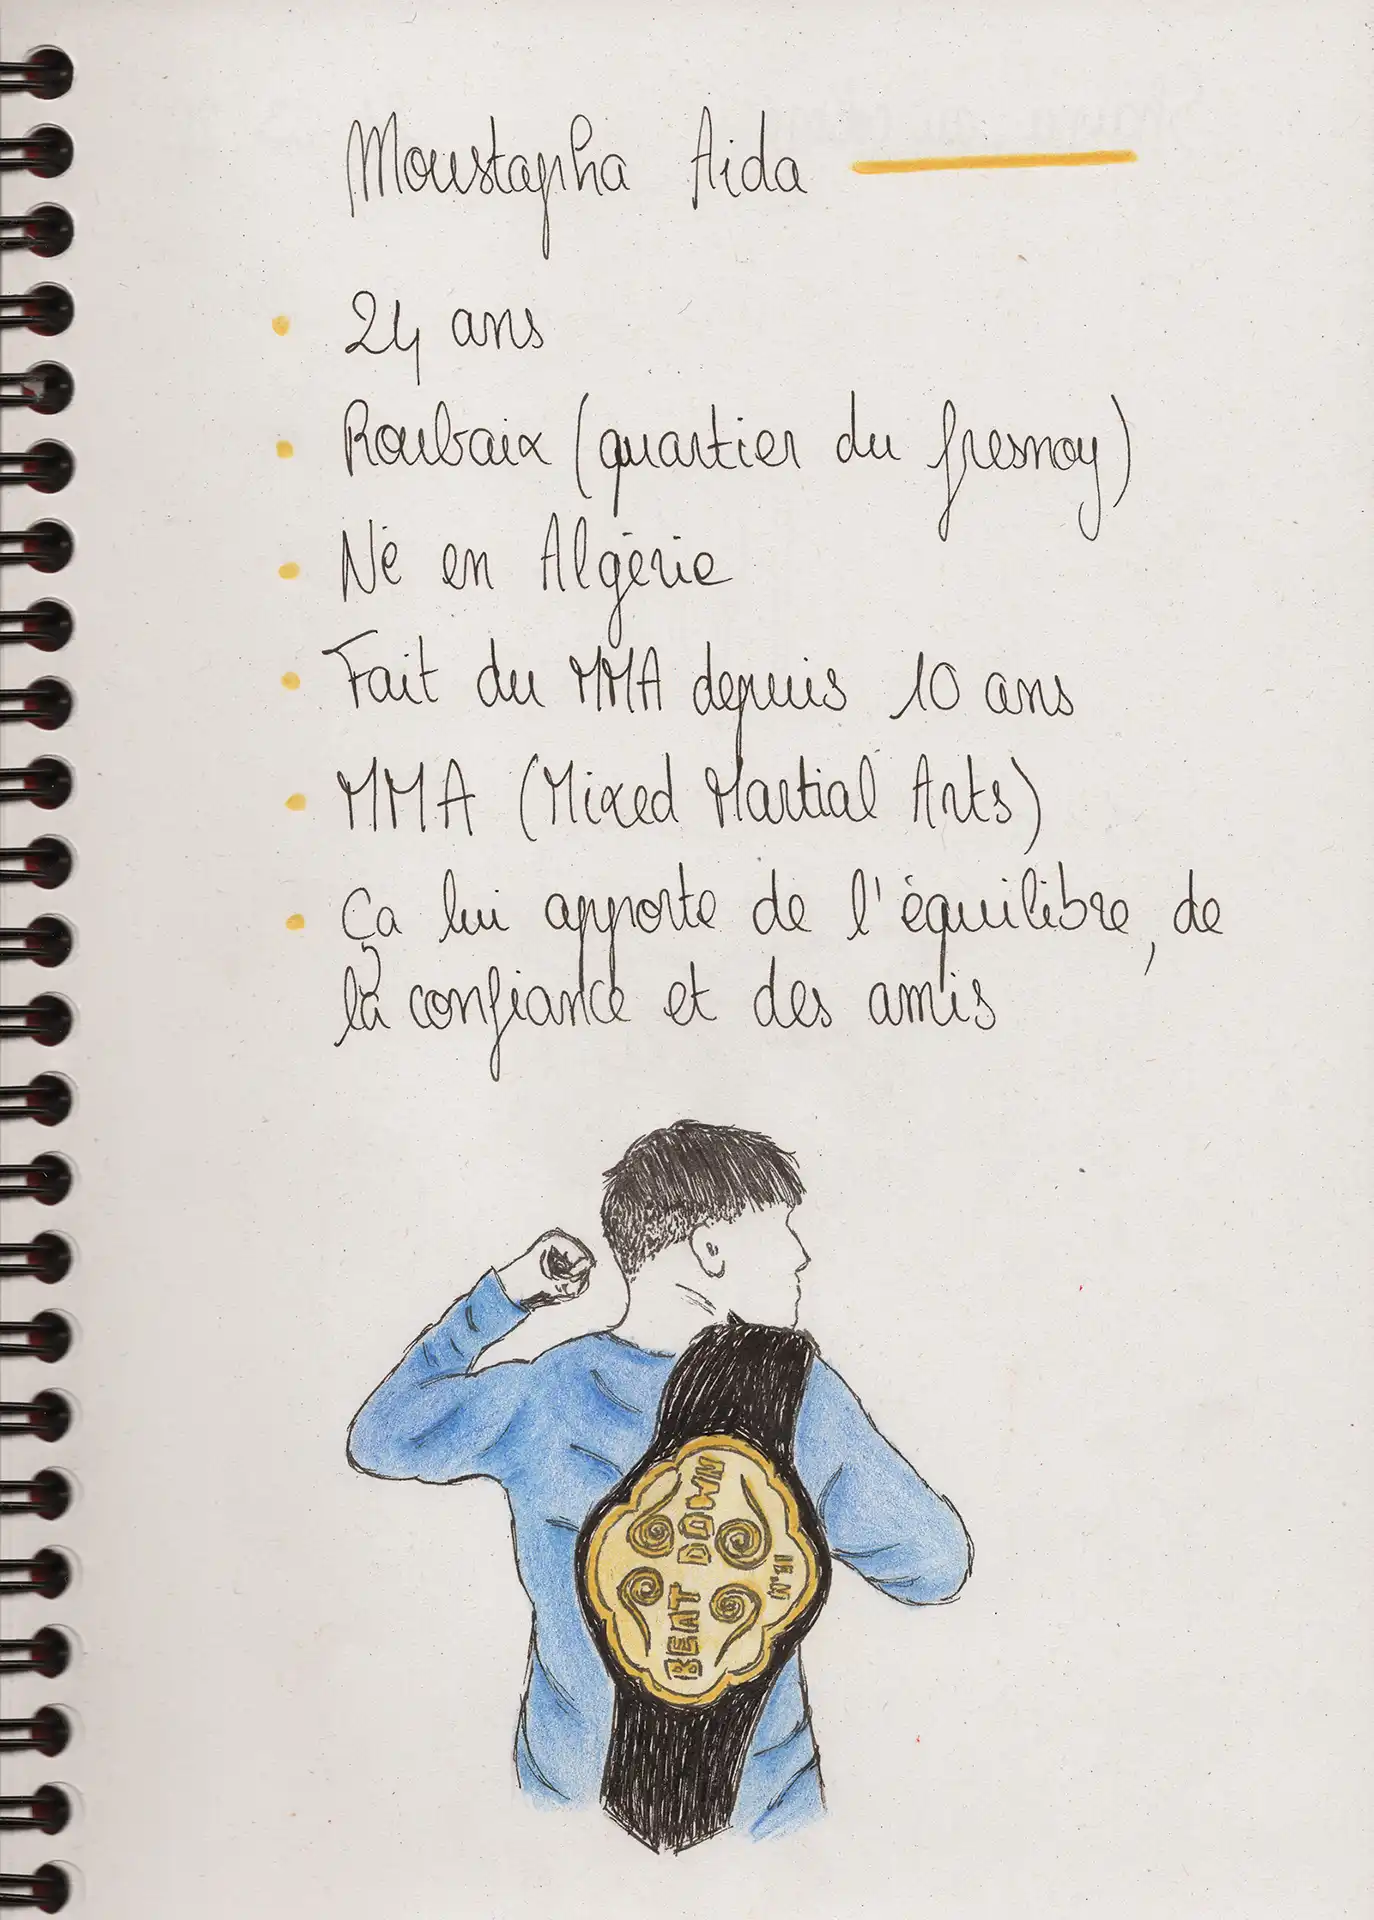 Moustapha Aida
24 ans
Roubaix (quartier du fresnoy)
Né en Algérie
Fait du MMA depuis 10 ans
MMA (Mixed Martial Arts)
Ça lui apporte de l'équilibre, de
la confiance et des amis
BEAT DOWN